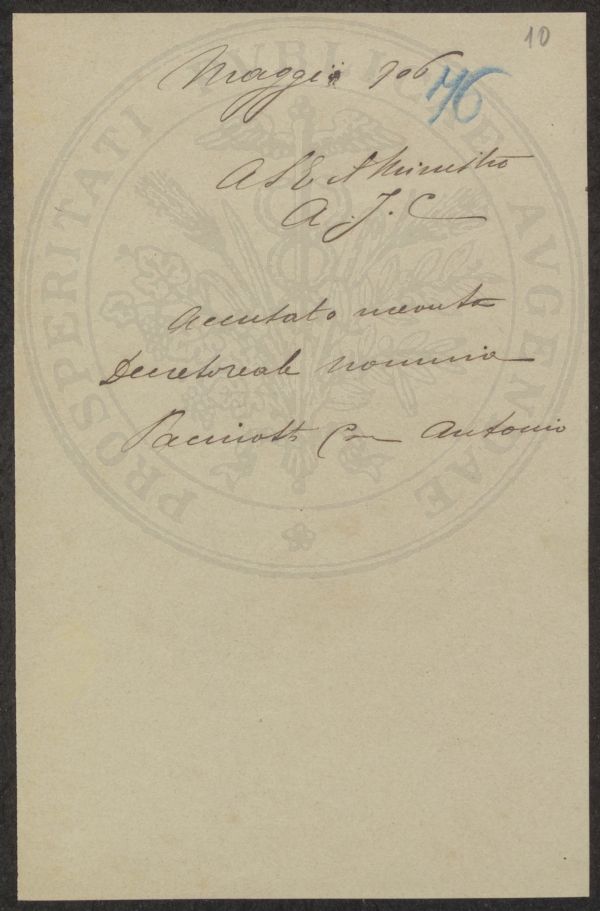 10
Maggio 906
76
A S E Il Ministro
A. J. C
Accusato ricevuta
Decreto reale nomina
Pacinotti Antonio
PROSPERITATI PVBLICAE AVGENDAE